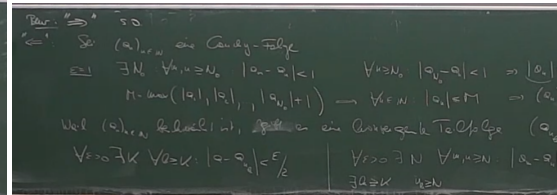 Bew. "⇒" s.o.
"⇐" Sei (a_n)_{n∈ℕ} eine Cauchy-Folge
ε=1 ∃N₀ ∀n,m≥N₀ |a_n-a_m|<1 ∀n≥N₀ |a_{N₀}-a_n|<1 ⇒ |a_n|
M=max(|a_1|,|a_2|,…,|a_{N₀}|+1) ⟹ ∀n∈ℕ: |a_n|≤M ⇒ (a_n
Weil (a_n)_{n∈ℕ} beschränkt ist, gibt es eine konvergente Teilfolge (a_{n_k}
∀ε>0 ∃K ∀k≥K: |a-a_{n_k}|<ε/2 ∀ε>0 ∃N ∀n,m≥N: |a_n-a
∃k≥K n_k≥N